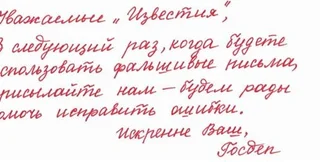 Уважаемые „Известия",
В следующий раз, когда будете
использовать фальшивые письма,
присылайте нам — будем рады
помочь исправить ошибки.
Искренне Ваш,
Госдеп